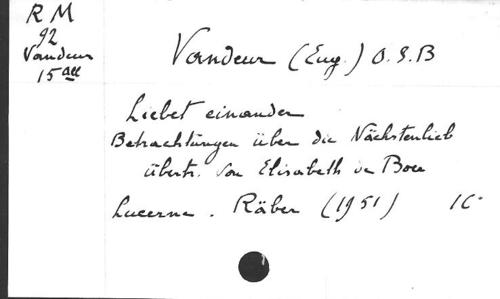 R M
92
Vandeur
15 all
Vandeur (Eug.) O.S.B
Liebet einander
Betrachtüngen über die Nächstenlieb
übertr. von Elisabeth de Boer
Lucerne. Räber (1951) 1C